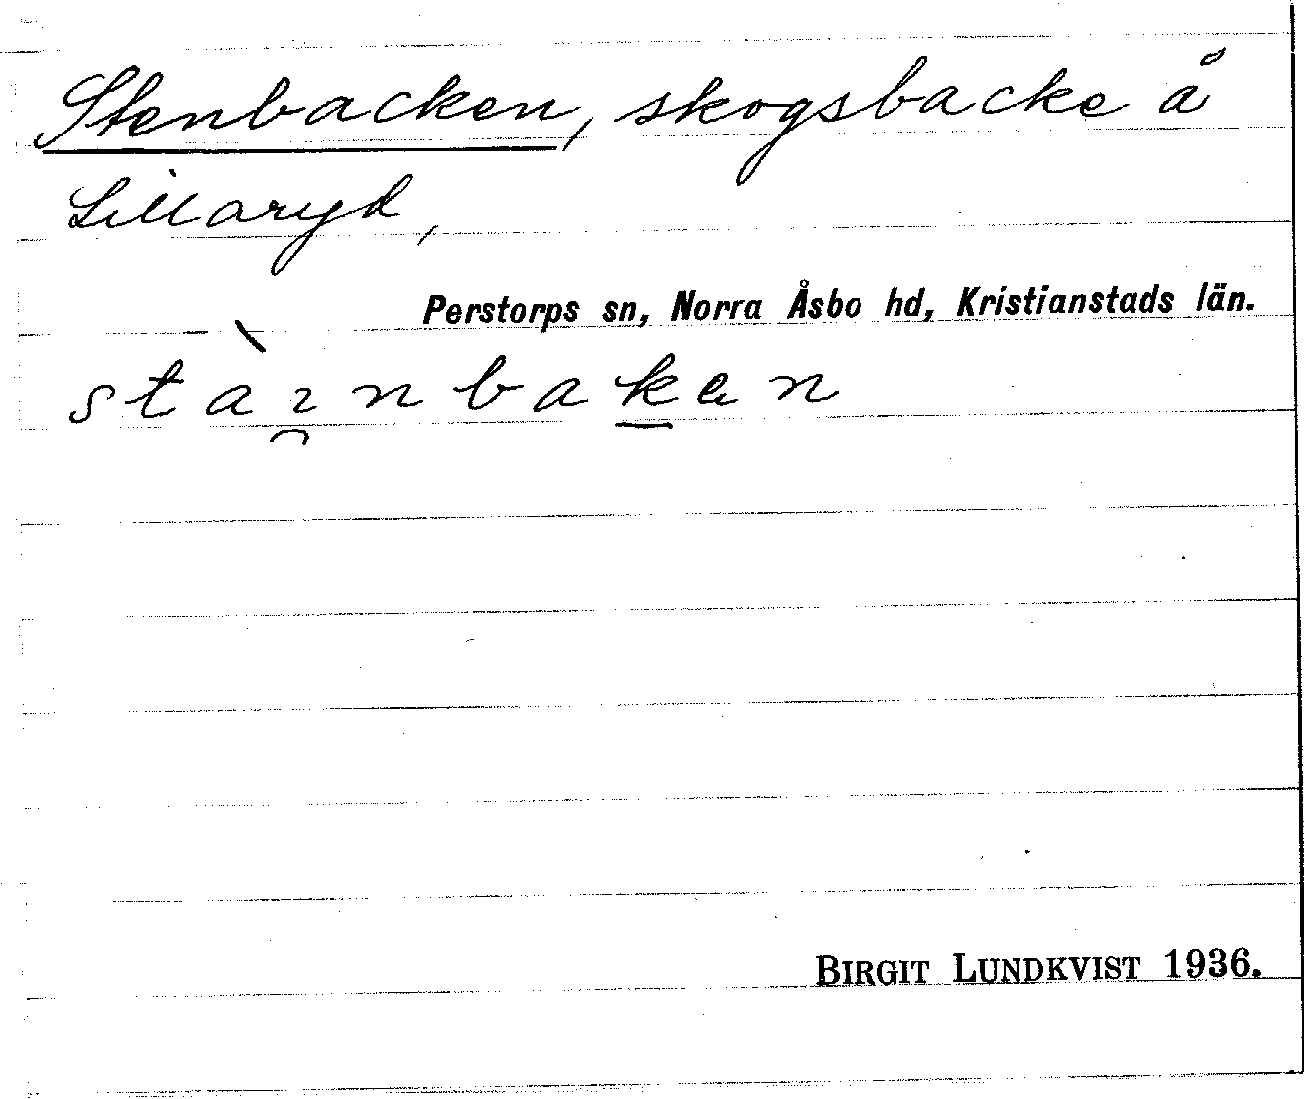 Stenbacken, skogsbacke å
Lillaryd,
Perstorps sn, Norra Åsbo hd, Kristianstads län.
stàɪ̯nbak̲en
BIRGIT LUNDKVIST 1936.